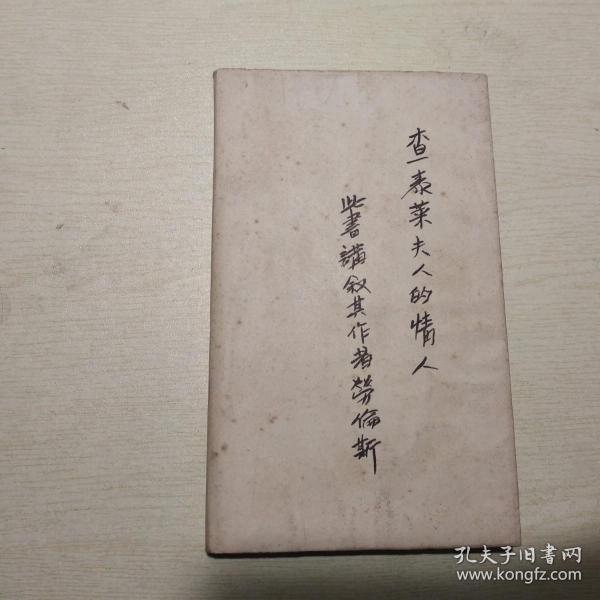 查泰莱夫人的情人
此書講叙其作者勞倫斯
孔夫子旧書网
www.kongfz.com